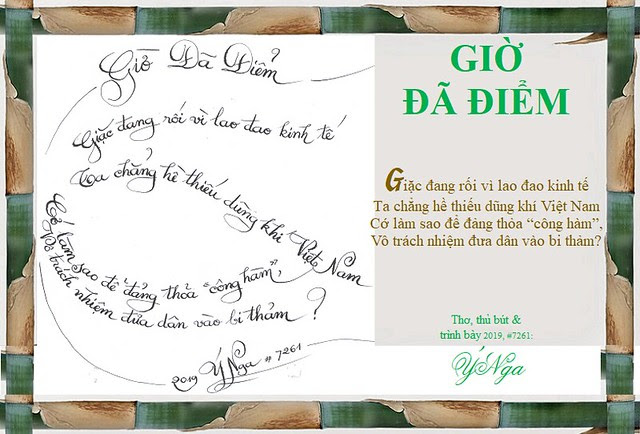 Giờ Đã Điểm
Giặc đang rối vì lao đao kinh tế
Ta chẳng hề thiếu dũng khí Việt Nam
Cớ làm sao để đảng thỏa "công hàm",
Vô trách nhiệm đưa dân vào bi thảm?
2019 ÝNga # 7261
GIỜ
ĐÃ ĐIỂM
Giặc đang rối vì lao đao kinh tế
Ta chẳng hề thiếu dũng khí Việt Nam
Cớ làm sao để đảng thỏa “công hàm”,
Vô trách nhiệm đưa dân vào bi thảm?
Thơ, thủ bút &
trình bày 2019, #7261:
ÝNga